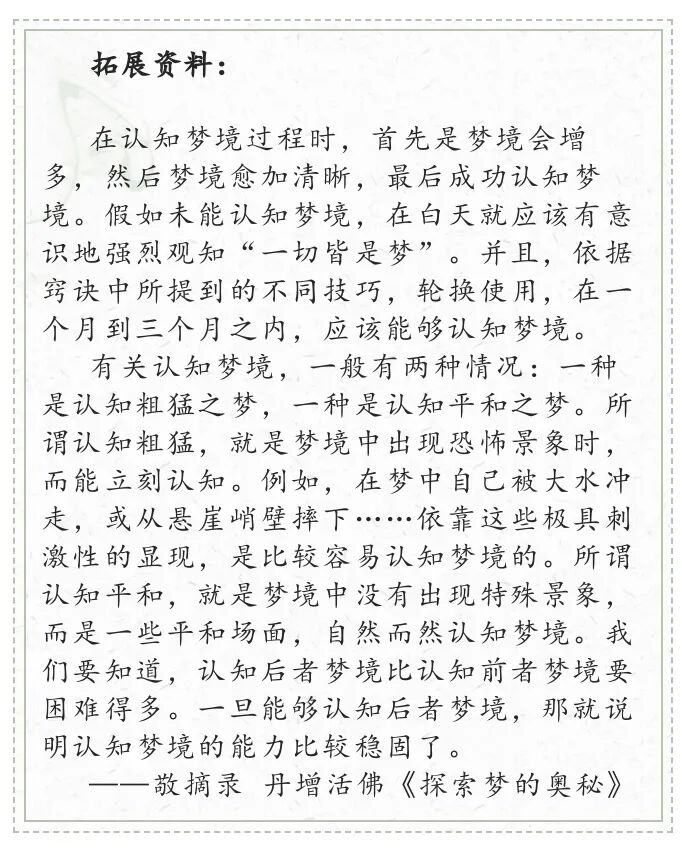 拓展资料：
在认知梦境过程时，首先是梦境会增
多，然后梦境愈加清晰，最后成功认知梦
境。假如未能认知梦境，在白天就应该有意
识地强烈观知“一切皆是梦”。并且，依据
窍诀中所提到的不同技巧，轮换使用，在一
个月到三个月之内，应该能够认知梦境。
有关认知梦境，一般有两种情况：一种
是认知粗猛之梦，一种是认知平和之梦。所
谓认知粗猛，就是梦境中出现恐怖景象时，
而能立刻认知。例如，在梦中自己被大水冲
走，或从悬崖峭壁摔下……依靠这些极具刺
激性的显现，是比较容易认知梦境的。所谓
认知平和，就是梦境中没有出现特殊景象，
而是一些平和场面，自然而然认知梦境。我
们要知道，认知后者梦境比认知前者梦境要
困难得多。一旦能够认知后者梦境，那就说
明认知梦境的能力比较稳固了。
——敬摘录 丹增活佛《探索梦的奥秘》